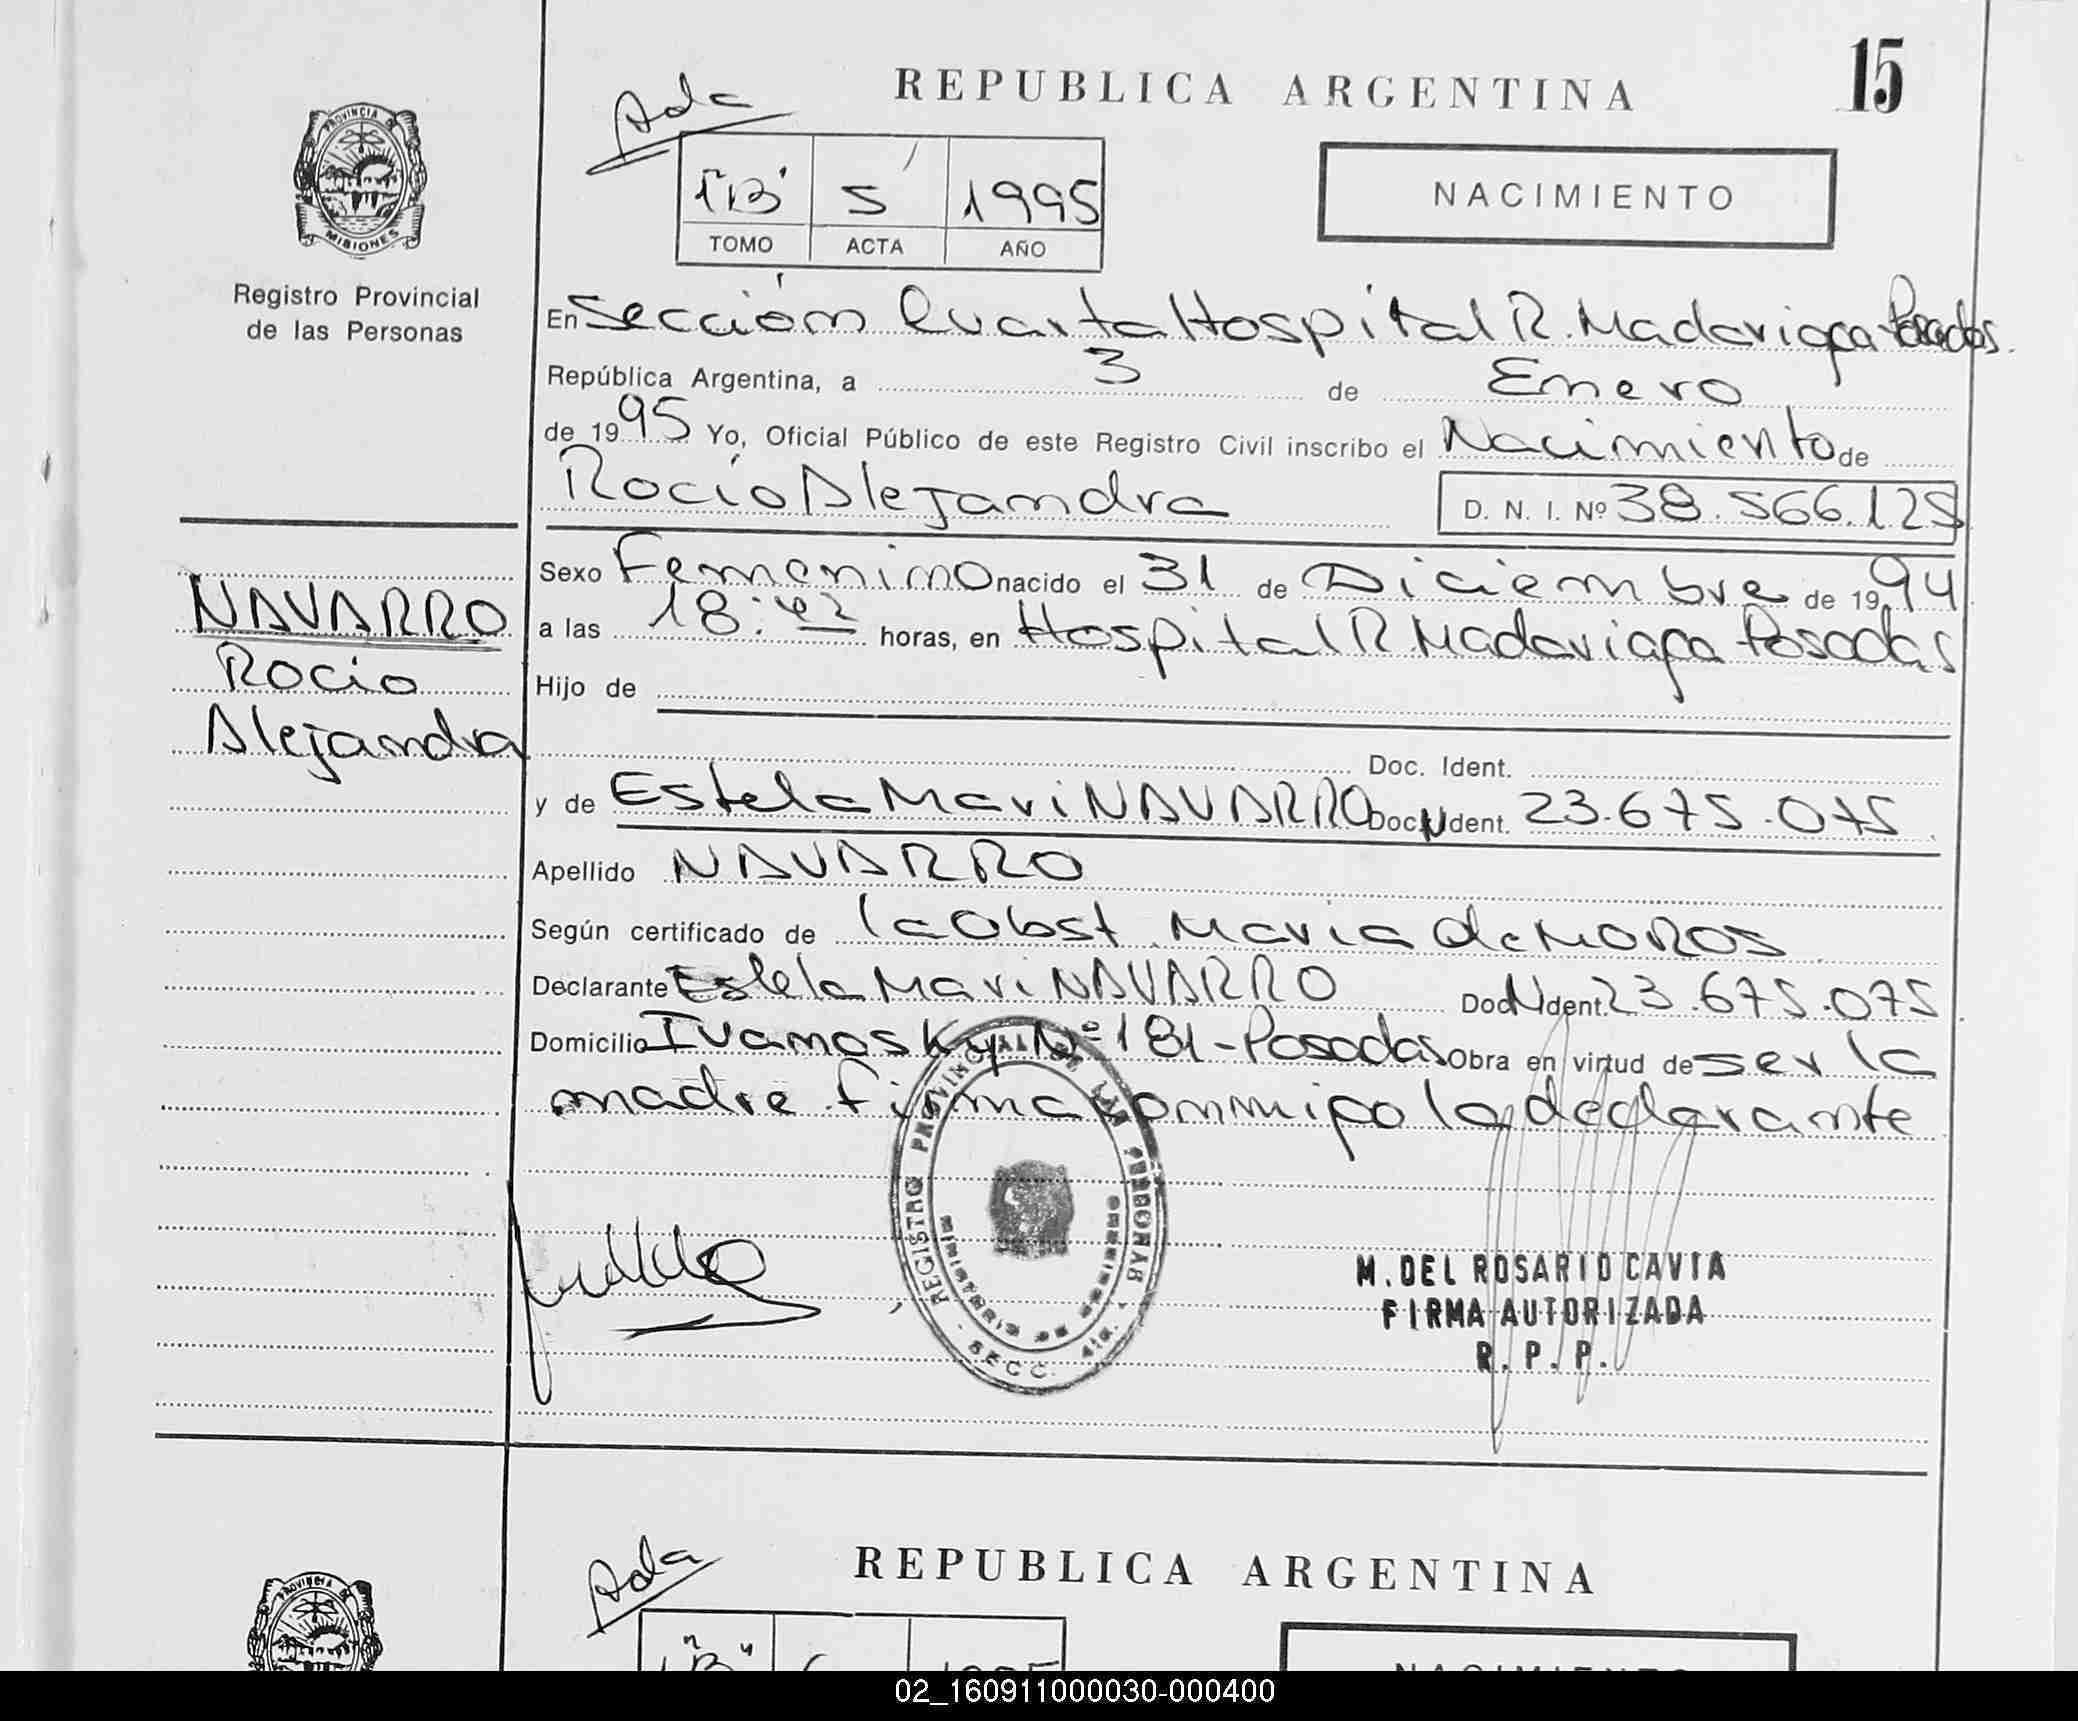 REPUBLICA ARGENTINA
15
Ada
PROVINCIA DE
MISIONES
Registro Provincial
de las Personas
"B" 5 1995
TOMO ACTA AÑO
NACIMIENTO
En Sección Cuarta Hospital R. Madariaga-Posadas.
República Argentina, a 3 de Enero
de 1995 Yo, Oficial Público de este Registro Civil inscribo el Nacimiento de
Rocío Alejandra D. N. I. Nº 38.566.125
NAVARRO
Rocio
Alejandra
Sexo Femenino nacido el 31 de Diciembre de 1994
a las 18:42 horas, en Hospital R. Madariaga Posadas
Hijo de
Doc. Ident.
y de Estela Mari NAVARRO Doc. Ident. 23.675.075
Apellido NAVARRO
Según certificado de la Obst. Maria de MOROS
Declarante Estela Mari NAVARRO Doc. Ident. 23.675.075
Domicilio Nº 181-Posadas Obra en virtud de ser la
madre. firma conmigo la declarante
REGISTRO PROVINCIAL DE LAS PERSONAS
MINISTERIO DE
SECC. 4ta.
M. DEL ROSARIO CAVIA
FIRMA AUTORIZADA
R. P. P.
Ada
REPUBLICA ARGENTINA
PROVINCIA DE
"B" 1995
NACIMIENTO
02_160911000030-000400